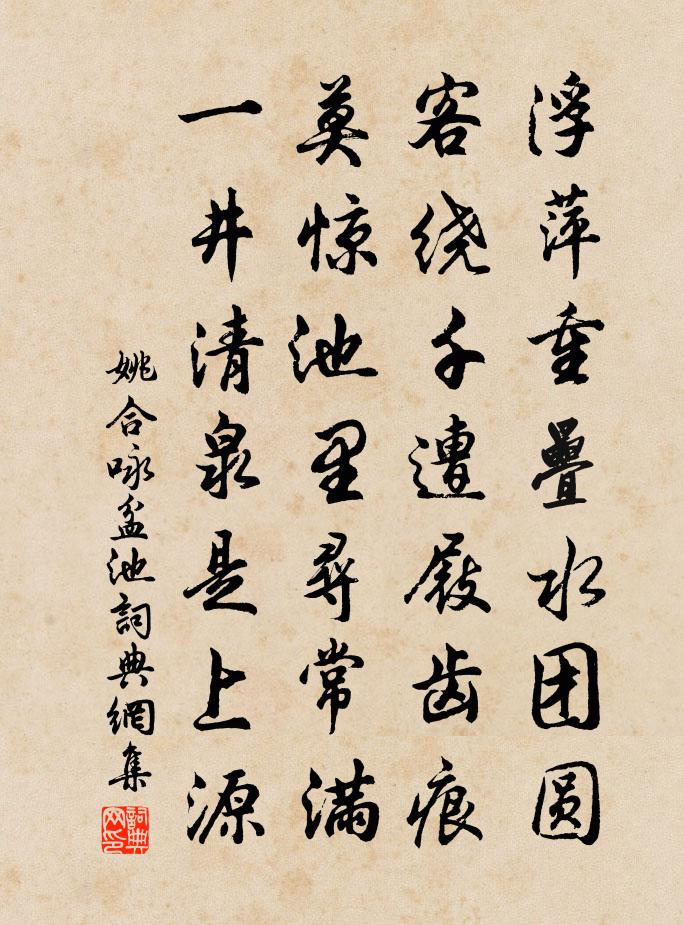 浮萍重疊水团圆
客绕千遭屐齿痕
莫惊池里寻常满
一井清泉是上源
姚合咏盆池詞典網集
詞典网印